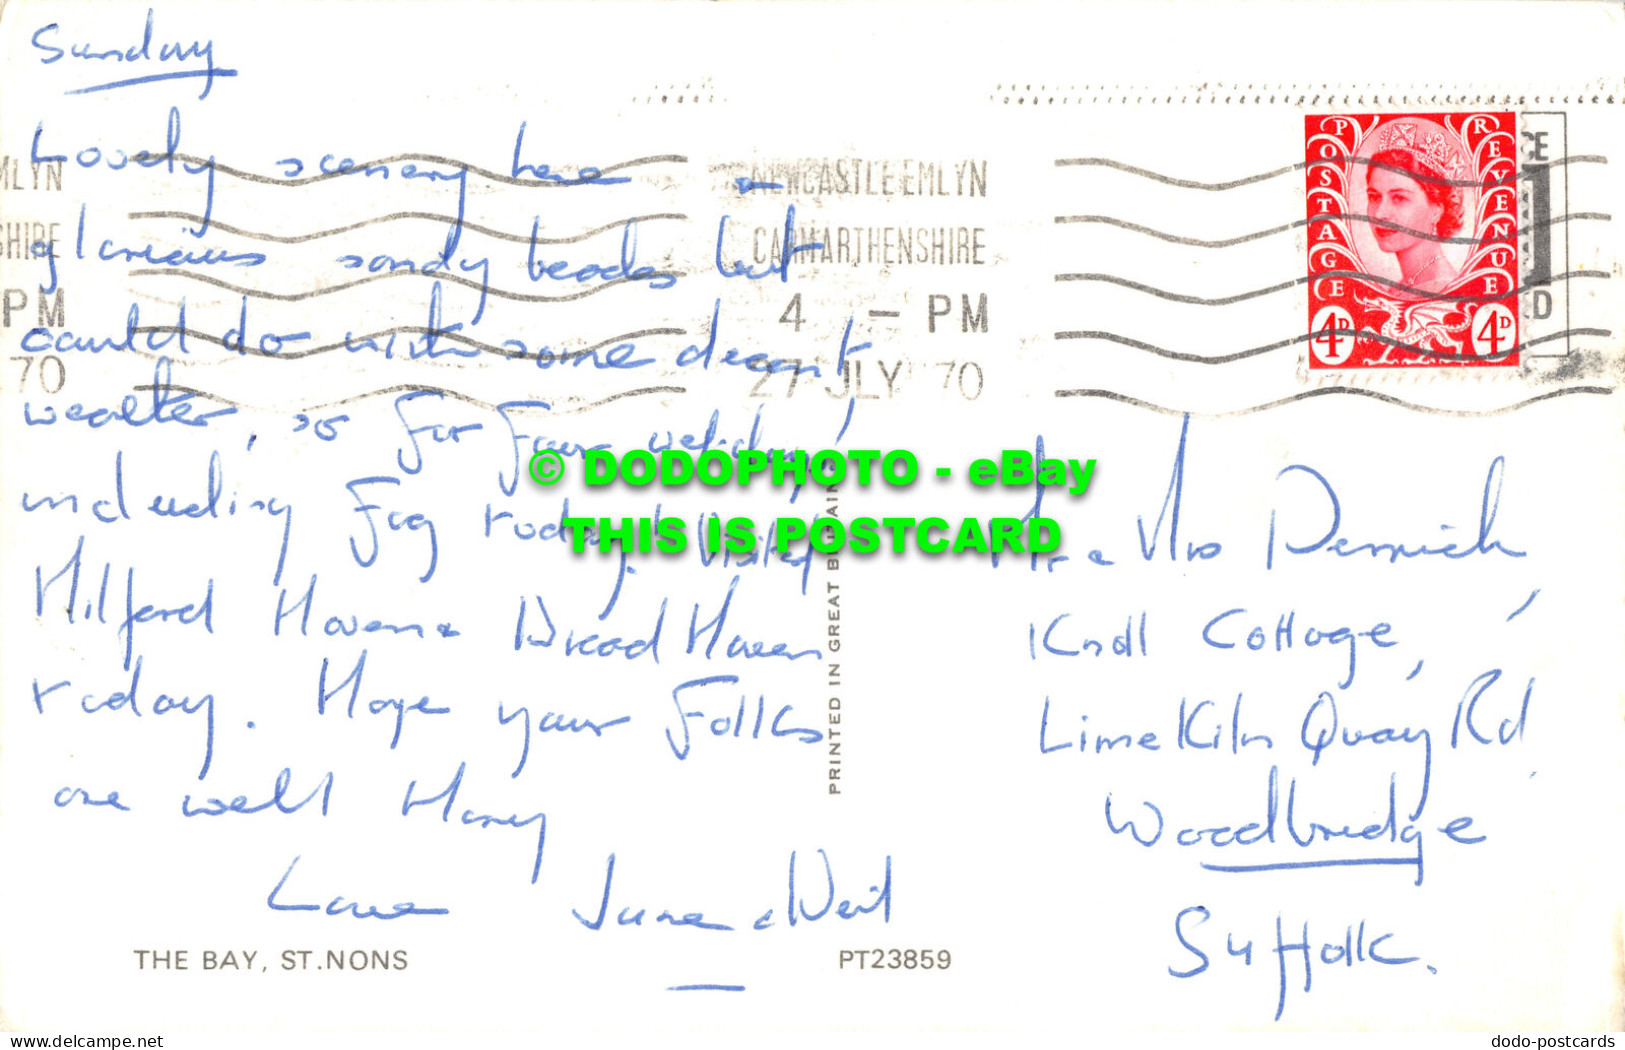 Sunday
Lovely scenery here -
glorious sandy beaches but
could do with some decent
weather, so far four wet days!
including Fog today! Visited
Milford Haven & Broad Haven
today. Hope your Folks
are well
Love June & Neil
THE BAY, ST.NONS
PT23859
PRINTED IN GREAT BRITAIN
MLYN
SHIRE
PM
70
NEWCASTLE EMLYN
CARMARTHENSHIRE
4 - PM
27 JLY 70
POSTAGE REVENUE
4D 4D
CE
D
Mr & Mrs
Knoll Cottage,
Lime Kiln Quay Rd
Woodbridge
Suffolk.
© DODOPHOTO - eBay
THIS IS POSTCARD
delcampe.net
dodo-postcards